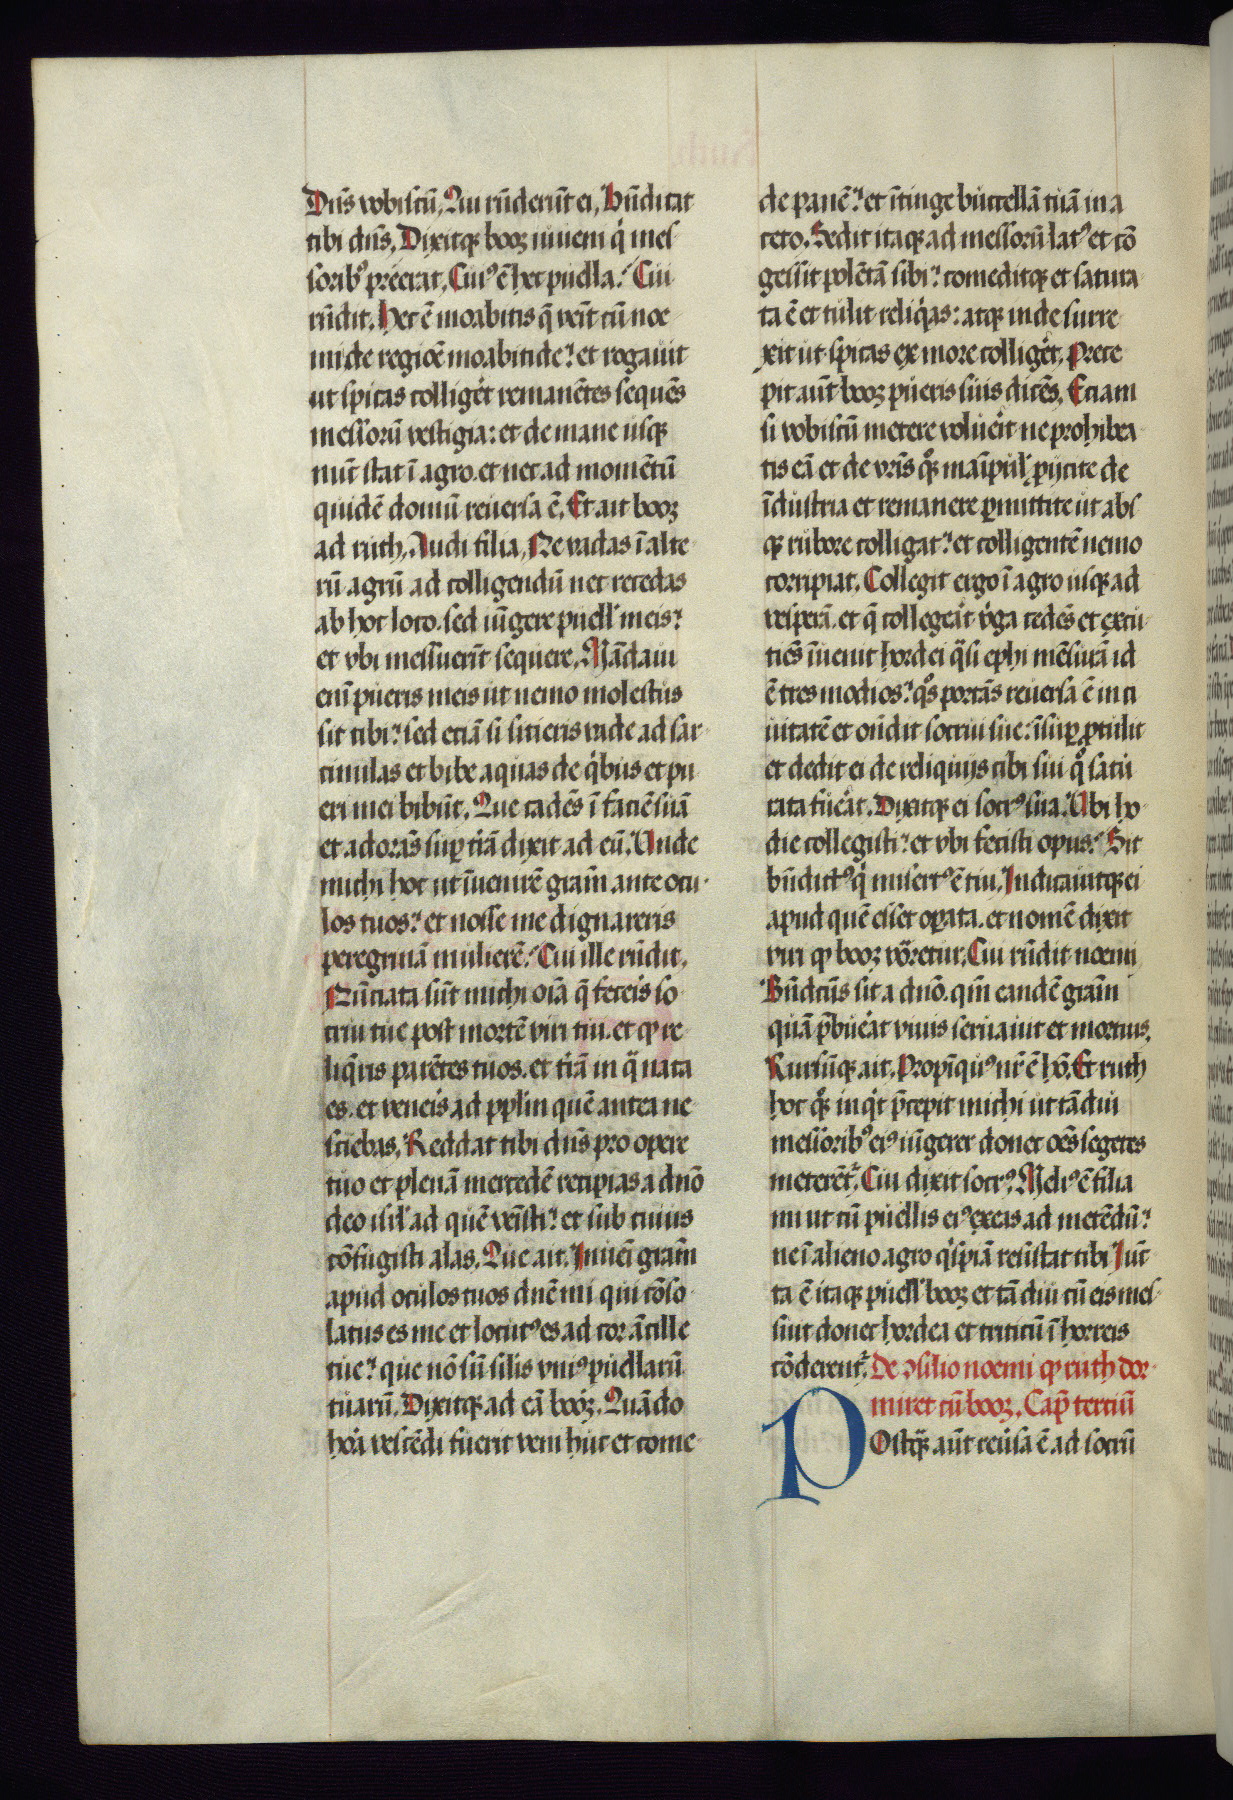 Dn̄s vobiscū, Qui rn̄derūt ei, Bn̄dicat
tibi dn̄s, Dixitqꝫ booz iuueni qͥ mes
soribꝰ preerat, Cuiꝰ ē hec puella? Cui
rn̄dit, Hec ē moabitis q̄ venīt cū noe
mi de regiōe moabitide? et rogauit
ut spicas colliget remanētes sequēs
messorū vestigia: et de mane usqꝫ
nūc stat ī agro. et nec ad momētū
quidē domū reuersa ē, Et ait booz
ad ruth, Audi filia, Ne vadas ī alte
rū agrū ad colligendū nec recedas
ab hoc loco. sed iūgere puell' meis?
et vbi messuerīt sequere, Mādaui
enī pueris meis ut nemo molestus
sit tibi? sed eciā si sitieris vade ad sar
cinulas et bibe aquas de qͥbus et pu
eri mei bibūt, Que cadēs ī faciē suā
et adorās suꝑ t̄rā dixit ad eū, Unde
michi hoc ut īuenirē gr̄am ante ocu
los tuos? et nosse me dignareris
peregrinā mulierē? Cui ille rn̄dit,
Nūciata sūt michi oīa q̄ feceris so
crui tue post mortē viri tui. et ꝙ re
liq̄ris parētes tuos. et t̄rā in qͣ nata
es. et veneis ad pplm̄ quē antea ne
sciebas, Reddat tibi dn̄s pro opere
tuo et plenā mercedē recipias a dn̄o
deo isrl' ad quē venīsti? et sub cuius
cōfugisti alas, Que ait, Inueni gr̄am
apud oculos tuos dn̄e mi qui cōso
latus es me et locutꝰ es ad cor ācille
tue? que nō sū silis vniꝰ puellarū
tuarū, Dixitqꝫ ad eā booz, Quādo
hora vescēdi fuerit veni huc et come
de panē? et ītinge buccellā tuā in a
ceto, Sedit itaqꝫ ad messorū latꝰ et cō
gessit polētā sibi? comeditqꝫ et satura
ta ē et tulit reliqͥas: atqꝫ inde surre
xit ut spicas ex more colliget, Prece
pit aūt booz pueris suis dicēs, Etiam
si vobiscū metere voluerit ne prohibea
tis eā et de vr̄is qͦꝫ manipul' proijcite de
īdustria et remanere ꝑmittite ut abs
qꝫ rubore colligat? et colligentē nemo
corripiat, Collegit ergo ī agro usqꝫ ad
vesperā. et q̄ collegeat vͥga cedēs et excu
tiēs īuenit hordei qͣsi ephi mēsurā id
ē tres modios? qͦs portās reuersa ē in ci
uitatē et on̄dit socrui sue? īsuꝑ ꝓtulit
et dedit ei de reliquijs cibi sui qͦ satu
rata fueat, Dixitqꝫ ei socrꝰ sua, Ubi ho
die collegisti? et vbi fecisti opus? Sit
bn̄dictꝰ qͥ misertꝰ ē tui, Indicauitqꝫ ei
apud quē esset oꝑata. et nomē dixit
viri ꝙ booz vocͣretur, Cui rn̄dit noemi
Bn̄dictus sit a dn̄o. qm̄ eandē gr̄am
quā p̄bueat viuis seruauit et mortuis,
Rursūqꝫ ait, Propīquꝰ nr̄ ē hō, Et ruth
hoc qͦꝫ inqͥt p̄cepit michi ut tādiu
messoribꝰ eiꝰ iūgerer donec oēs segetes
meterēt̉, Cui dixit socrꝰ, Meliꝰ ē filia
mi ut cū puellis eiꝰ exeas ad metēdū?
ne ī alieno agro qͥspiā resistat tibi Iūc
ta ē itaqꝫ puell' booz et tādiu cū eis mes
suit donec hordea et triticū ī horreis
cōderent̉, De ꝯsilio noemi ꝙ ruth dor
miret cū booz, Cap̄ tercium
Postqͣꝫ aūt reūsa ē ad socrū